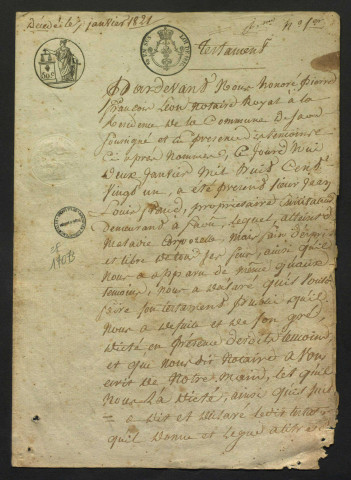 Décédé le 7 janvier 1821
n° 1er
Testament
Pardevant Nous honoré pierre
françois Léon notaire Royal à la
Residence de la Commune De
Soussigné et en presence des temoins
Ci après Nommés, Ce Jourd'hui
Deux Janvier Mil huit Cent
Vingt un, a été present Sieur Jean
Louis, propriétaire
demeurant à, lequel, atteint
Maladie Corporelle, Mais sain D'esprit
et libre De tous ses sens, ainsi qu'il
Nous a apparu De même qu'aux
temoins, Nous a déclaré qu'il vouloit
faire son testament public qu'il
Nous a De suite et De son gré
Dicté en présence desdits temoins
et que Nous dit Notaire avons
écrit De Notre Main, tel que
Nous L'a Dicté, ainsi qu'il suit
a Dit et Déclaré ledit testateur
qu'il Donne et Legue à titre